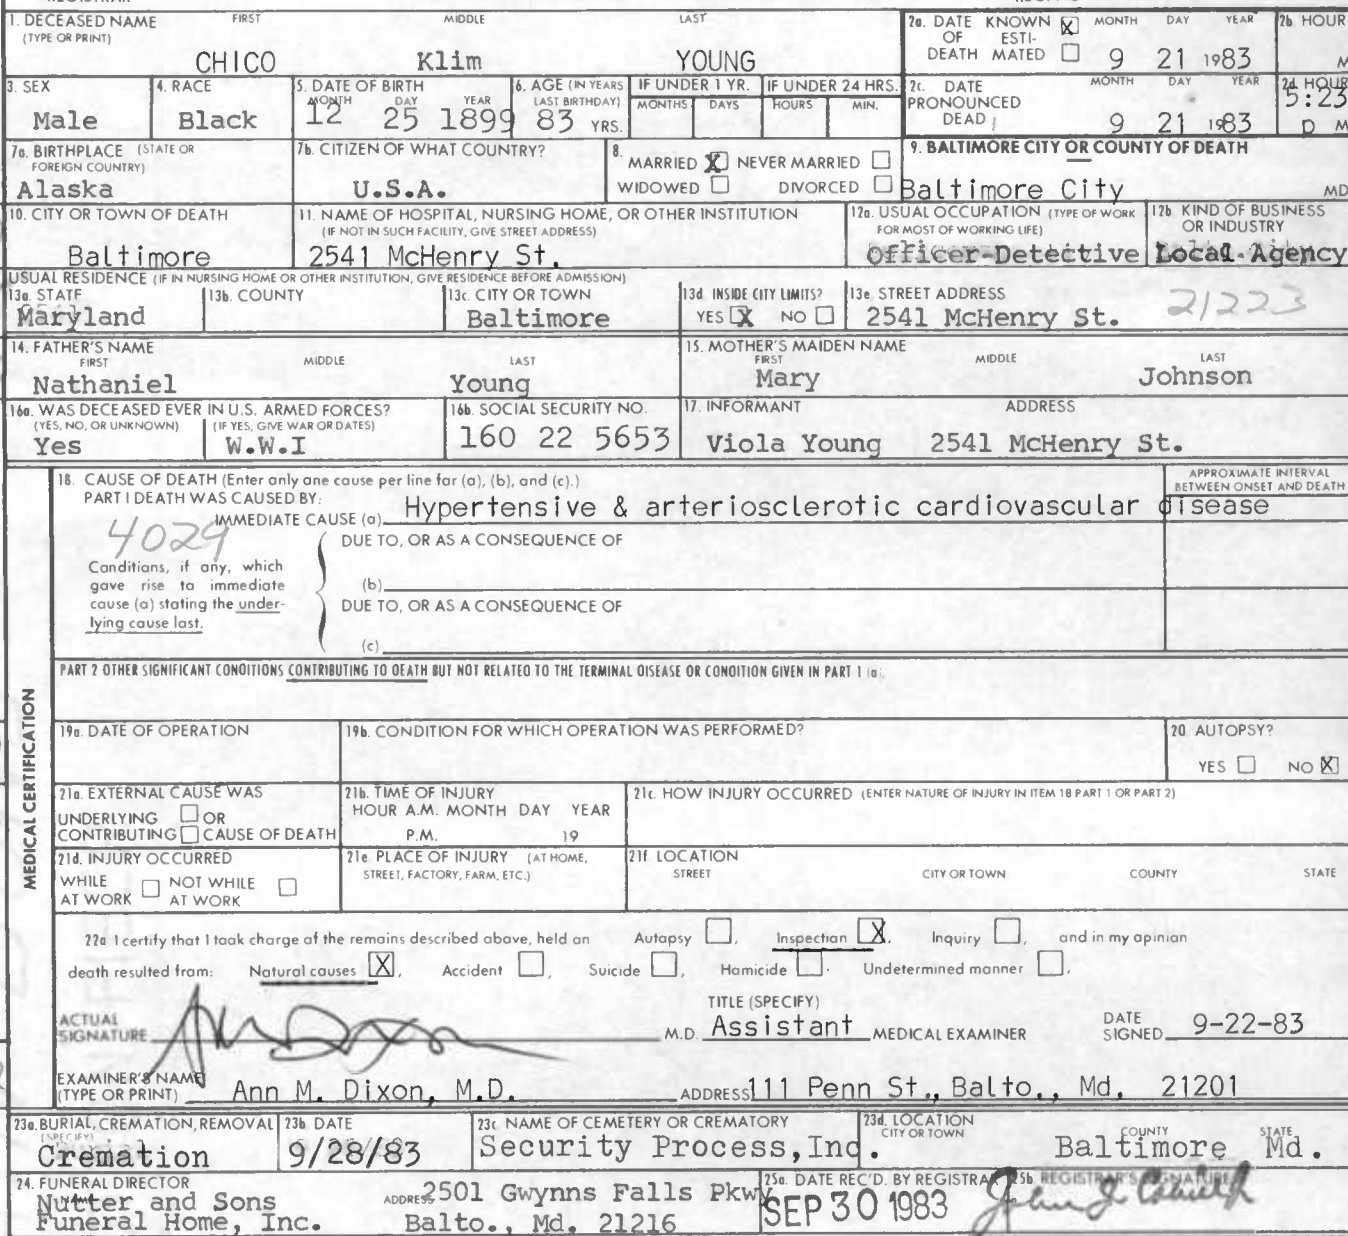 1. DECEASED NAME FIRST MIDDLE LAST
(TYPE OR PRINT)
CHICO Klim YOUNG
2a. DATE KNOWN X MONTH DAY YEAR
OF ESTI-
DEATH MATED 9 21 1983
2b HOUR
M
3. SEX
Male
4. RACE
Black
5. DATE OF BIRTH
MONTH DAY YEAR
12 25 1899
6. AGE (IN YEARS
LAST BIRTHDAY)
83 YRS.
IF UNDER 1 YR.
MONTHS DAYS
IF UNDER 24 HRS.
HOURS MIN.
2c. DATE MONTH DAY YEAR
PRONOUNCED
DEAD 9 21 1983
2d HOUR
5:23
p M
7a. BIRTHPLACE (STATE OR
FOREIGN COUNTRY)
Alaska
7b. CITIZEN OF WHAT COUNTRY?
U.S.A.
8.
MARRIED X NEVER MARRIED
WIDOWED DIVORCED
9. BALTIMORE CITY OR COUNTY OF DEATH
Baltimore City MD
10. CITY OR TOWN OF DEATH
Baltimore
11. NAME OF HOSPITAL, NURSING HOME, OR OTHER INSTITUTION
(IF NOT IN SUCH FACILITY, GIVE STREET ADDRESS)
2541 McHenry St.
12a. USUAL OCCUPATION (TYPE OF WORK
FOR MOST OF WORKING LIFE)
Officer-Detective
12b. KIND OF BUSINESS
OR INDUSTRY
Local Agency
USUAL RESIDENCE (IF IN NURSING HOME OR OTHER INSTITUTION, GIVE RESIDENCE BEFORE ADMISSION)
13a. STATE
Maryland
13b. COUNTY
13c. CITY OR TOWN
Baltimore
13d. INSIDE CITY LIMITS?
YES X NO
13e. STREET ADDRESS
2541 McHenry St. 21223
14. FATHER'S NAME
FIRST MIDDLE LAST
Nathaniel Young
15. MOTHER'S MAIDEN NAME
FIRST MIDDLE LAST
Mary Johnson
16a. WAS DECEASED EVER IN U.S. ARMED FORCES?
(YES, NO, OR UNKNOWN) (IF YES, GIVE WAR OR DATES)
Yes W.W.I
16b. SOCIAL SECURITY NO.
160 22 5653
17. INFORMANT ADDRESS
Viola Young 2541 McHenry St.
MEDICAL CERTIFICATION
18. CAUSE OF DEATH (Enter only one cause per line for (a), (b), and (c).)
PART I DEATH WAS CAUSED BY:
APPROXIMATE INTERVAL
BETWEEN ONSET AND DEATH
IMMEDIATE CAUSE (a) Hypertensive & arteriosclerotic cardiovascular disease
4029
DUE TO, OR AS A CONSEQUENCE OF
Conditions, if any, which
gave rise to immediate
cause (a) stating the under-
lying cause last.
(b)
DUE TO, OR AS A CONSEQUENCE OF
(c)
PART 2 OTHER SIGNIFICANT CONDITIONS CONTRIBUTING TO DEATH BUT NOT RELATED TO THE TERMINAL DISEASE OR CONDITION GIVEN IN PART 1 (a).
19a. DATE OF OPERATION
19b. CONDITION FOR WHICH OPERATION WAS PERFORMED?
20. AUTOPSY?
YES NO X
21a. EXTERNAL CAUSE WAS
UNDERLYING OR
CONTRIBUTING CAUSE OF DEATH
21b. TIME OF INJURY
HOUR A.M. MONTH DAY YEAR
P.M. 19
21c. HOW INJURY OCCURRED (ENTER NATURE OF INJURY IN ITEM 18 PART 1 OR PART 2)
21d. INJURY OCCURRED
WHILE NOT WHILE
AT WORK AT WORK
21e PLACE OF INJURY (AT HOME,
STREET, FACTORY, FARM, ETC.)
21f LOCATION
STREET CITY OR TOWN COUNTY STATE
22a I certify that I took charge of the remains described above, held an Autopsy , Inspection X, Inquiry , and in my opinion
death resulted from: Natural causes X, Accident , Suicide , Homicide . Undetermined manner .
ACTUAL
SIGNATURE
M.D.
TITLE (SPECIFY)
Assistant MEDICAL EXAMINER
DATE
SIGNED 9-22-83
EXAMINER'S NAME
(TYPE OR PRINT) Ann M. Dixon, M.D.
ADDRESS 111 Penn St., Balto., Md. 21201
23a. BURIAL, CREMATION, REMOVAL
(SPECIFY)
Cremation
23b. DATE
9/28/83
23c NAME OF CEMETERY OR CREMATORY
Security Process, Inc.
23d. LOCATION
CITY OR TOWN COUNTY STATE
Baltimore Md.
24. FUNERAL DIRECTOR
Nutter and Sons
Funeral Home, Inc.
ADDRESS 2501 Gwynns Falls Pkwy
Balto., Md. 21216
25a. DATE REC'D. BY REGISTRAR
SEP 30 1983
25b. REGISTRAR'S SIGNATURE